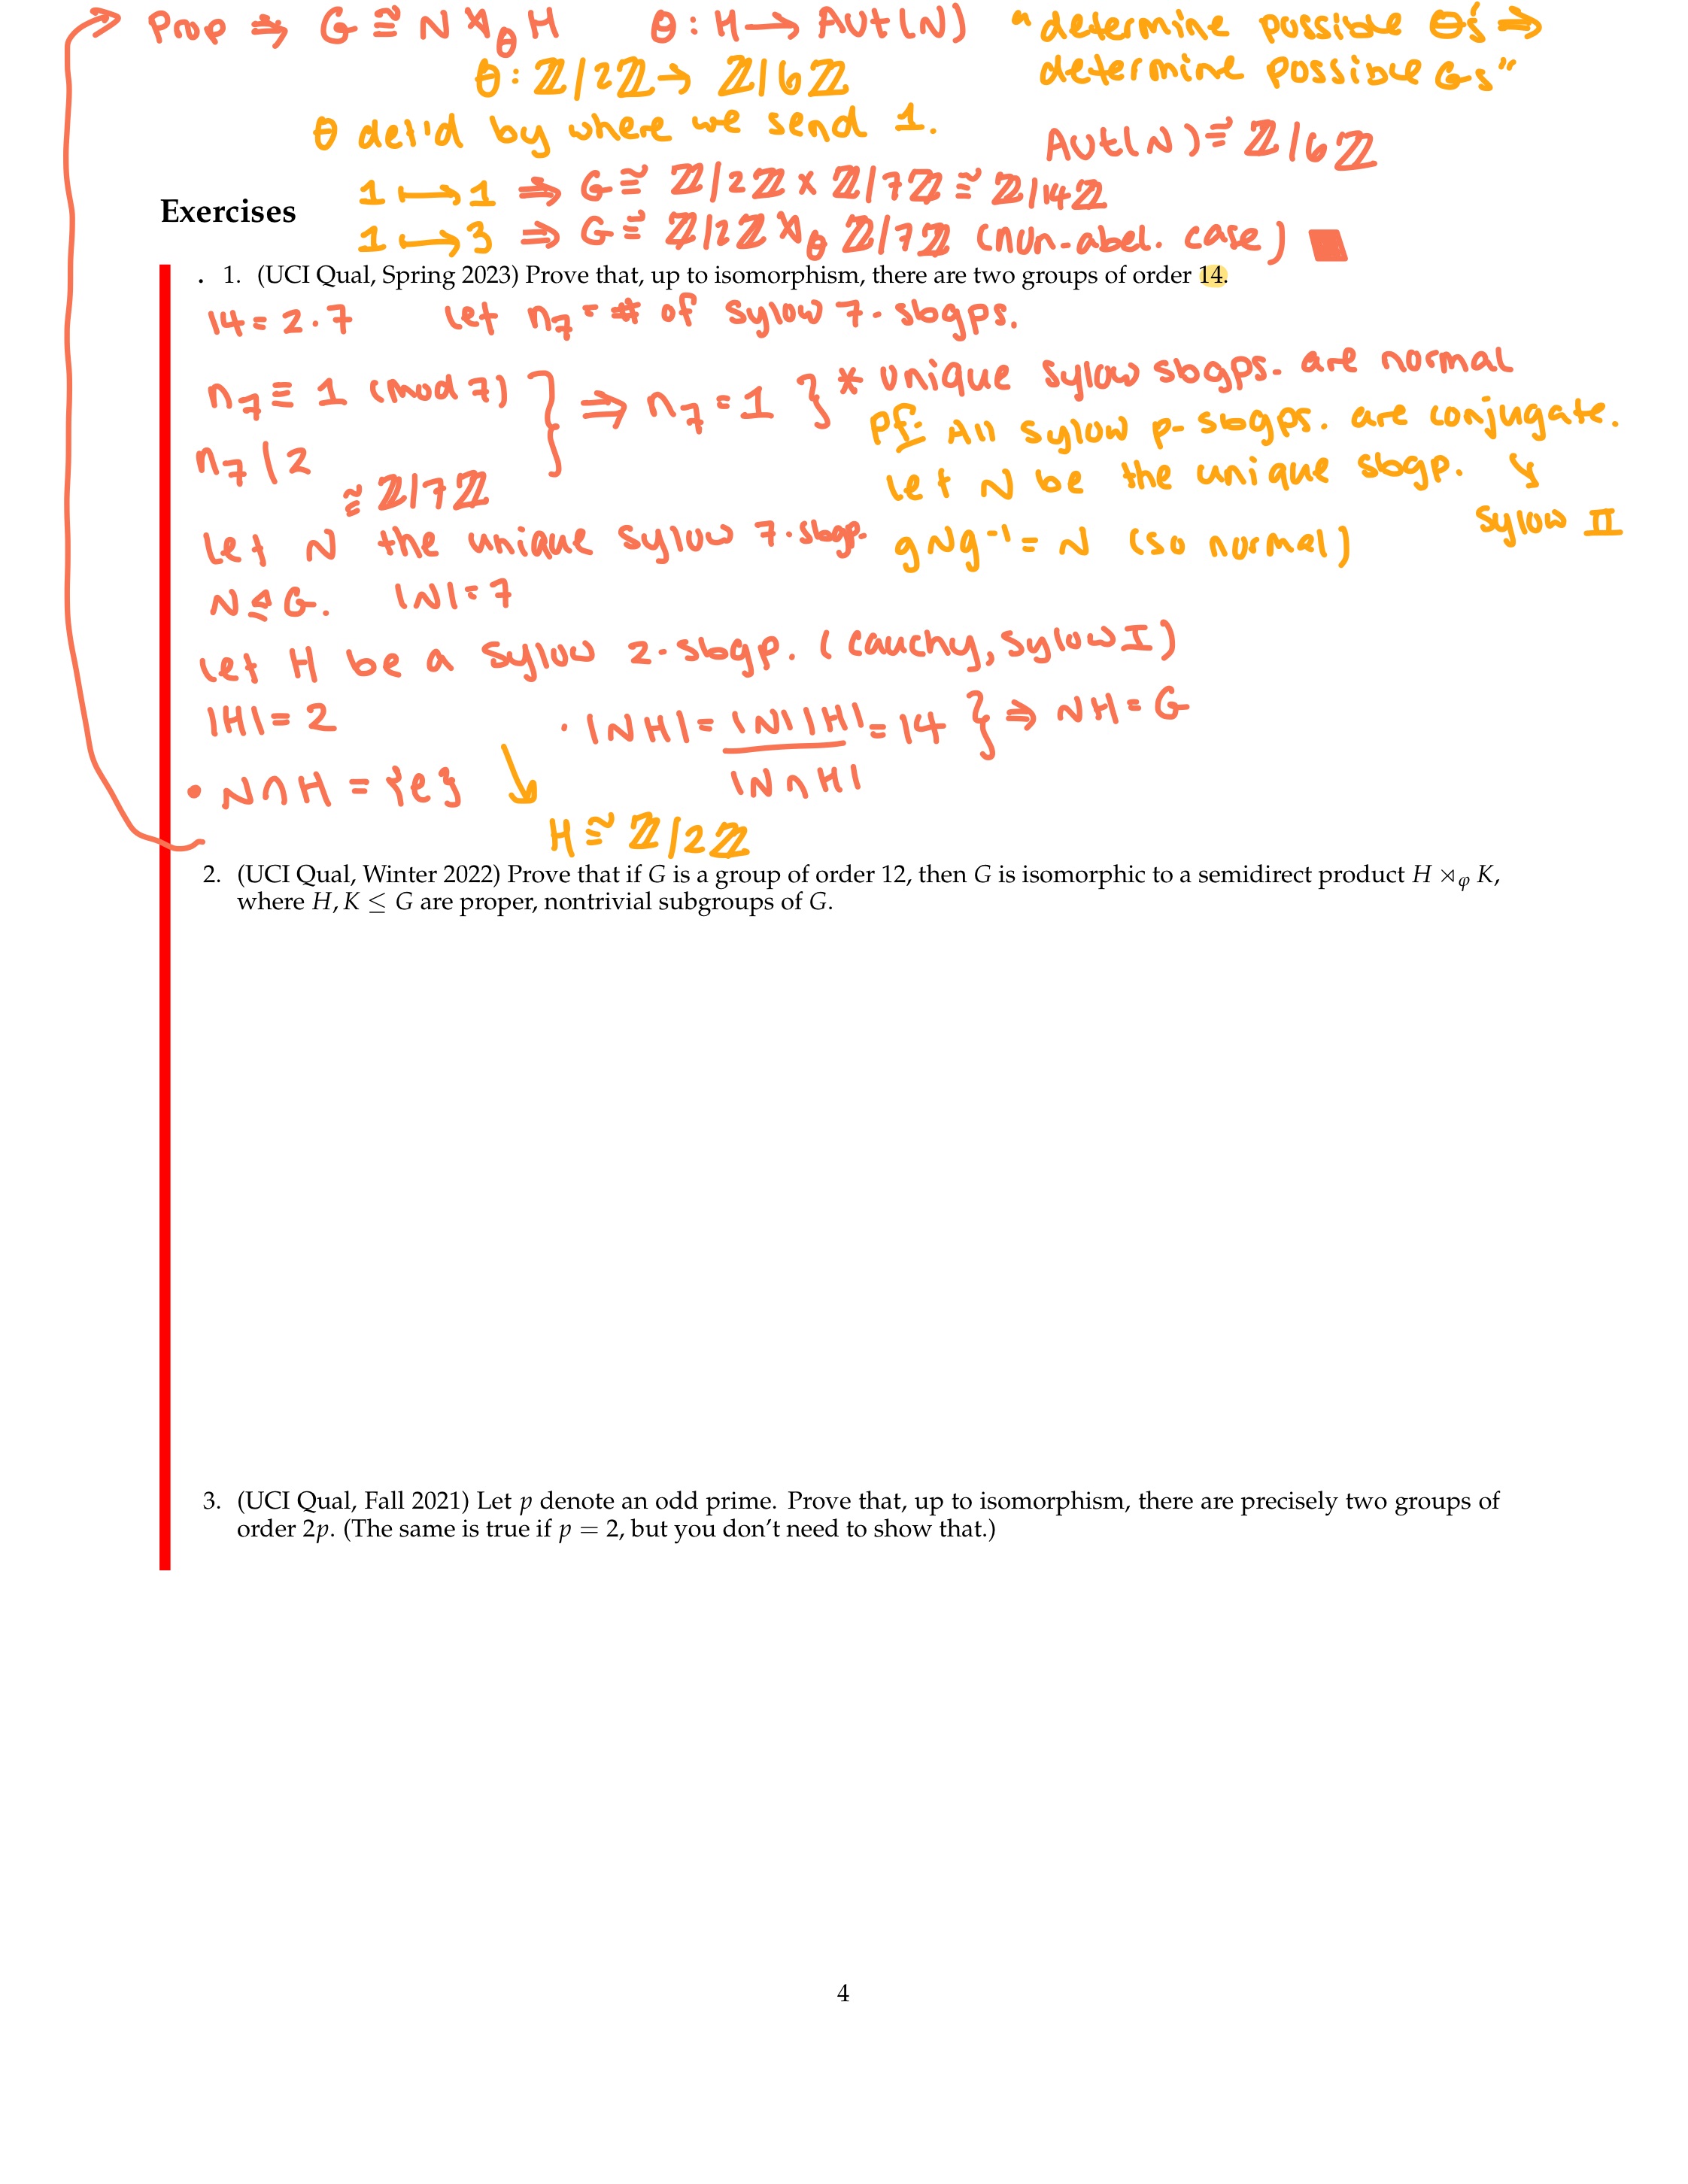 Prop ⇒ G ≅ N ⋊_θ H θ : H → Aut(N) "determine possible θ's ⇒
θ : ℤ/2ℤ → ℤ/6ℤ determine possible Gs"
θ det'd by where we send 1. Aut(N) ≅ ℤ/6ℤ
1 ↦ 1 ⇒ G ≅ ℤ/2ℤ × ℤ/7ℤ ≅ ℤ/14ℤ
Exercises
1 ↦ 3 ⇒ G ≅ ℤ/2ℤ ⋊_θ ℤ/7ℤ (non-abel. case) ■
1. (UCI Qual, Spring 2023) Prove that, up to isomorphism, there are two groups of order 14.
14 = 2·7 Let n_7 = # of Sylow 7-sbgps.
n_7 ≡ 1 (mod 7) } ⇒ n_7 = 1 } * unique Sylow sbgps. are normal
n_7 | 2
Pf: All Sylow p-sbgps. are conjugate.
Let N be the unique sbgp. Sylow II
≅ ℤ/7ℤ
Let N the unique Sylow 7-sbgp. gNg⁻¹ = N (so normal)
N ⊴ G. |N| = 7
Let H be a Sylow 2-sbgp. (Cauchy, Sylow I)
|H| = 2 · |NH| = |N||H| / |N∩H| = 14 } ⇒ NH = G
• N∩H = {e}
H ≅ ℤ/2ℤ
2. (UCI Qual, Winter 2022) Prove that if G is a group of order 12, then G is isomorphic to a semidirect product H ⋊_φ K,
where H, K ≤ G are proper, nontrivial subgroups of G.
3. (UCI Qual, Fall 2021) Let p denote an odd prime. Prove that, up to isomorphism, there are precisely two groups of
order 2p. (The same is true if p = 2, but you don't need to show that.)
4